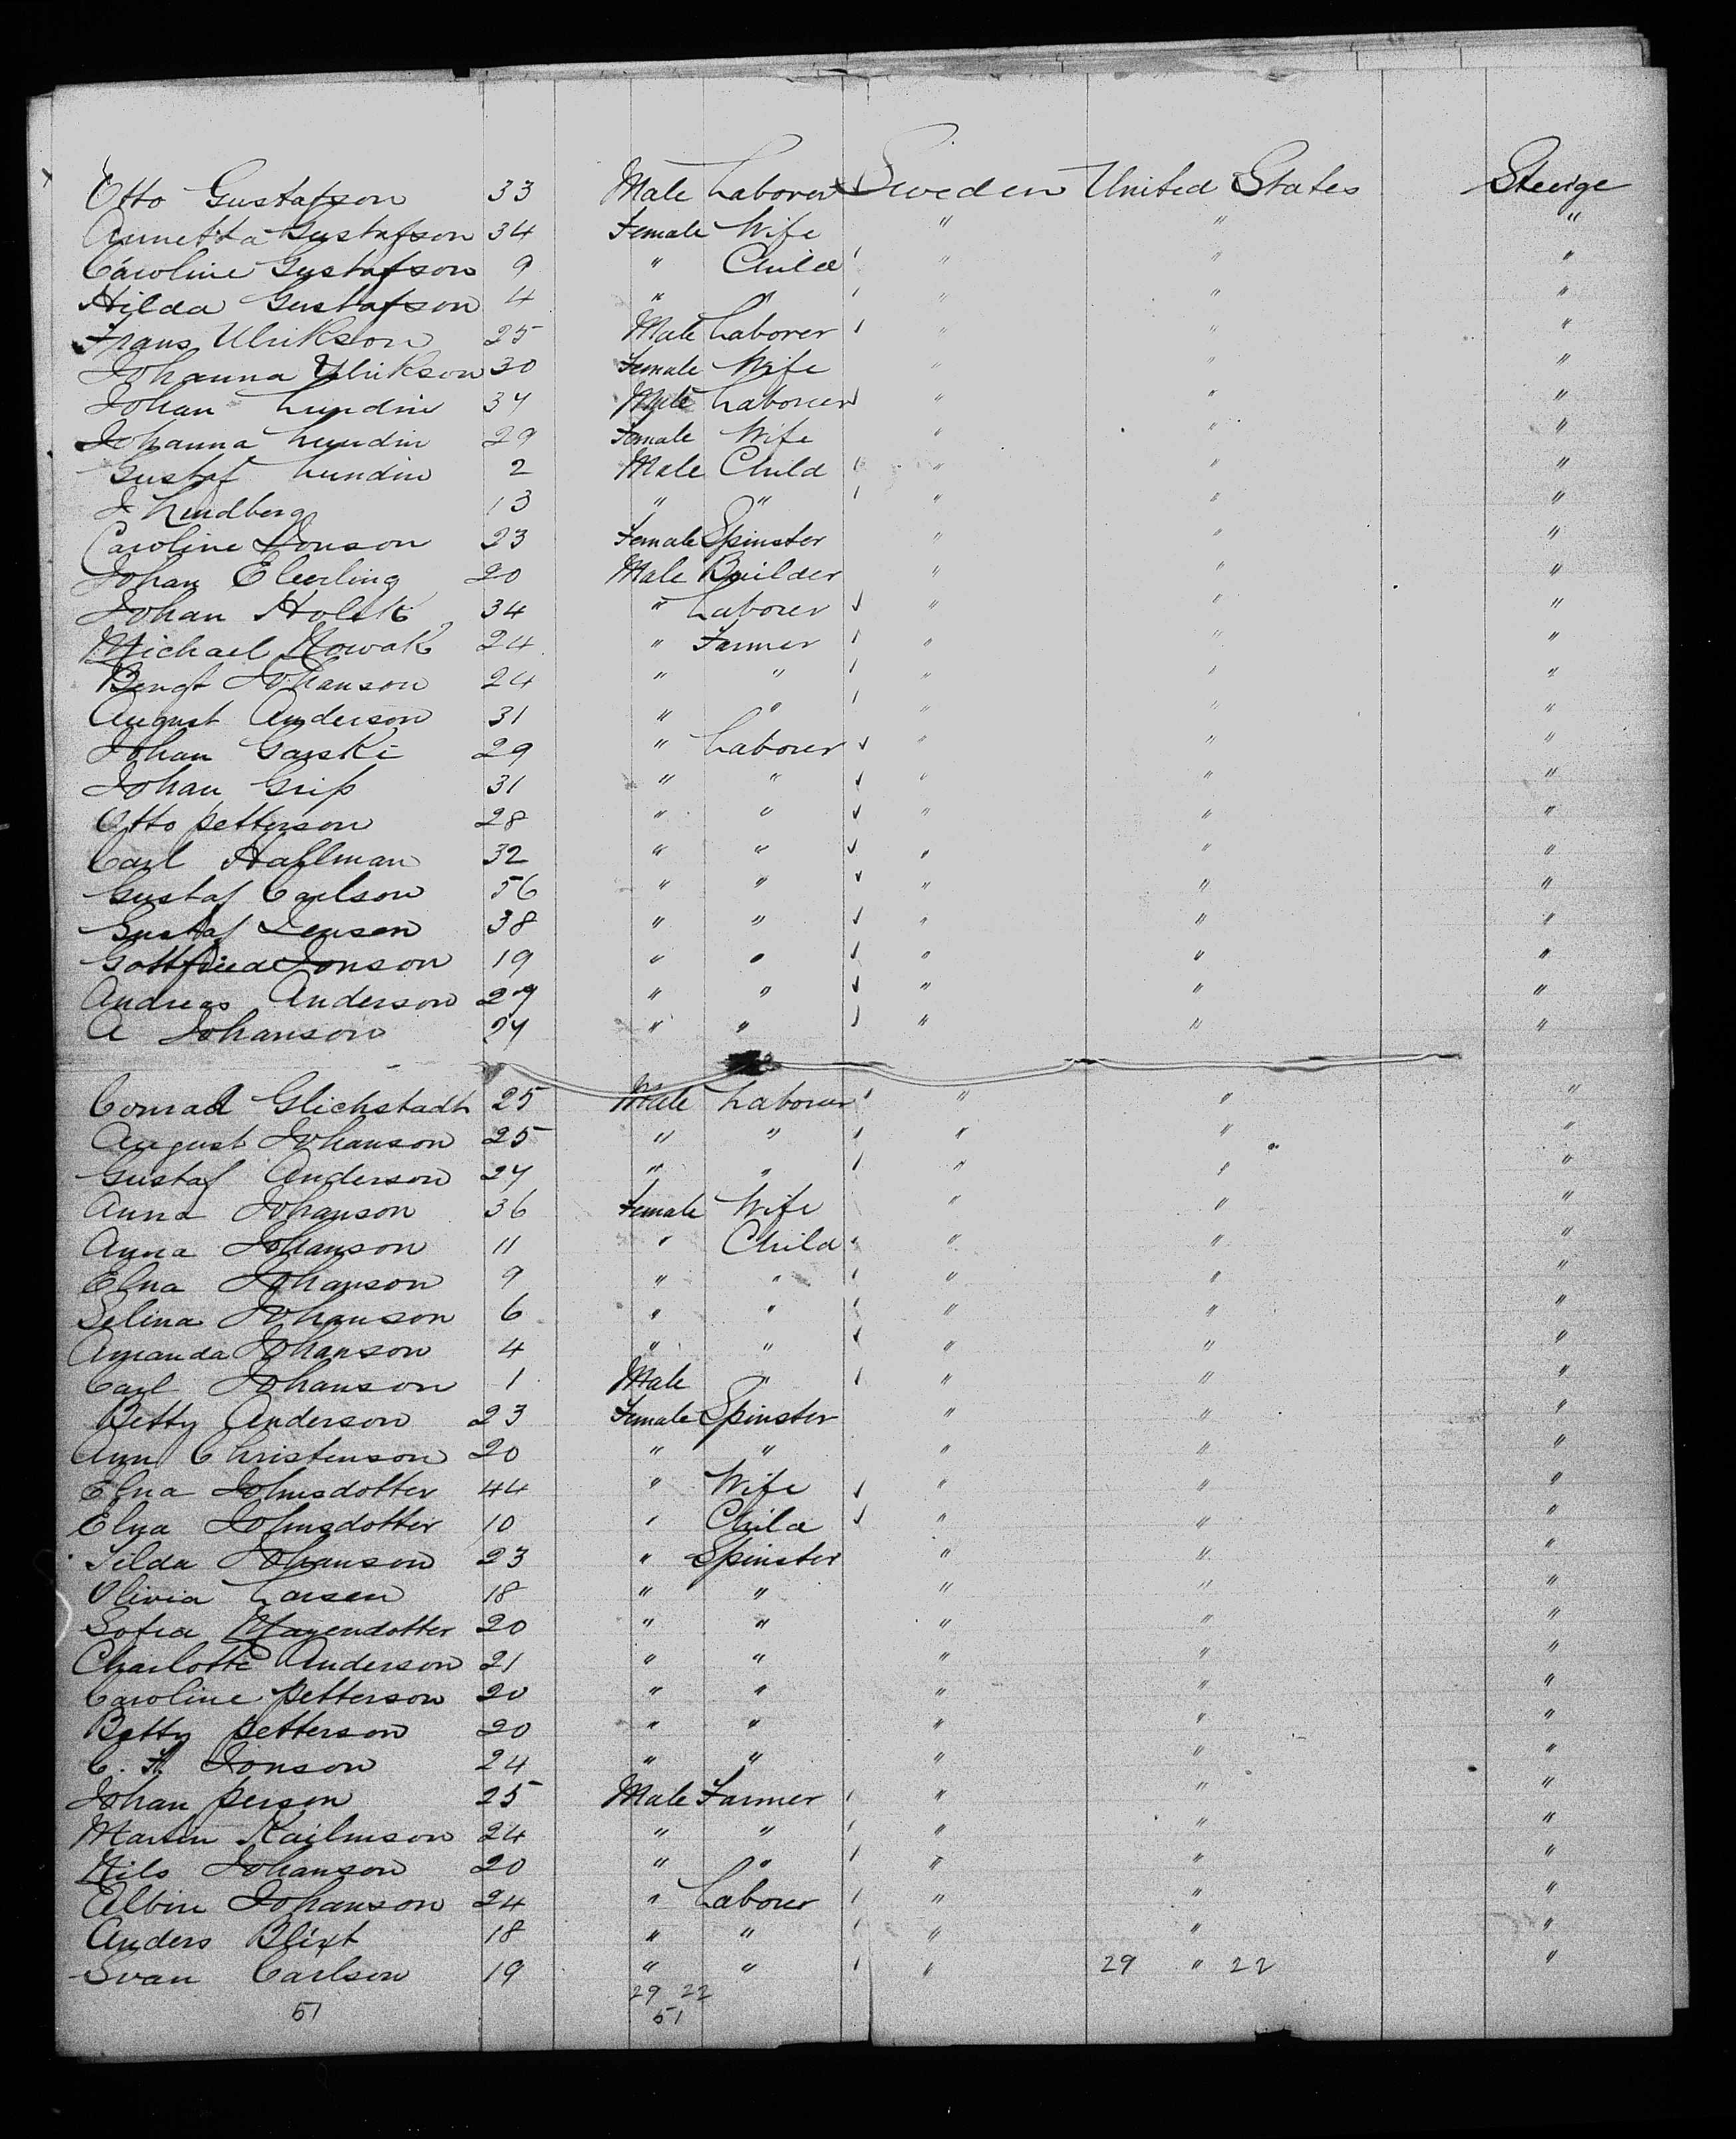 Otto Gustafson 33 Male Laborer Sweden United States Steerge
Annetta Gustafson 34 Female Wife " " "
Caroline Gustafson 9 " Child " " "
Hilda Gustafson 4 " " " " "
Frans Ulrikson 25 Male Laborer " " "
Johanna Ulrikson 30 Female Wife " " "
Johan Lundin 34 Male Laborer " " "
Johanna Lundin 29 Female Wife " " "
Gustaf Lundin 2 Male Child " " "
J Lindberg 13 " " " " "
Caroline Jonson 23 Female Spinster " " "
Johan 20 Male Builder " " "
Johan Holek 34 " Laborer " " "
Michael Nowak 24 " Farmer " " "
Bengt Johanson 24 " " " " "
August Anderson 31 " " " " "
Johan Garski 29 " Laborer " " "
Johan Grip 31 " " " " "
Otto petterson 28 " " " " "
Carl Hallman 32 " " " " "
Gustaf Carlson 56 " " " " "
Gustaf Jensen 38 " " " " "
Gottfried Jonson 19 " " " " "
Andreas Anderson 29 " " " " "
A Johanson 24 " " " " "
Conrad Glichstadt 25 Male Laborer " " "
August Johanson 25 " " " " "
Gustaf Anderson 24 " " " " "
Anna Johanson 36 Female Wife " " "
Anna Johanson 11 " Child " " "
Elna Johanson 9 " " " " "
Selina Johanson 6 " " " " "
Amanda Johanson 4 " " " " "
Carl Johanson 1 Male " " " "
Betty Anderson 23 Female Spinster " " "
Ann Christenson 20 " " " " "
Elna Johnsdotter 44 " Wife " " "
Elna Johnsdotter 10 " Child " " "
Tilda Johanson 23 " Spinster " " "
Olivia Larsen 18 " " " " "
Sofia 20 " " " " "
Charlotte Anderson 21 " " " " "
Caroline petterson 20 " " " " "
Betty petterson 20 " " " " "
C. Jonson 24 " " " " "
Johan person 25 Male Farmer " " "
Martin 24 " " " " "
Nils Johanson 20 " " " " "
Albin Johanson 24 " Laborer " " "
Anders Blixt 18 " " " " "
Svan Carlson 19 " " " 29 " 22 "
29 22
51 51